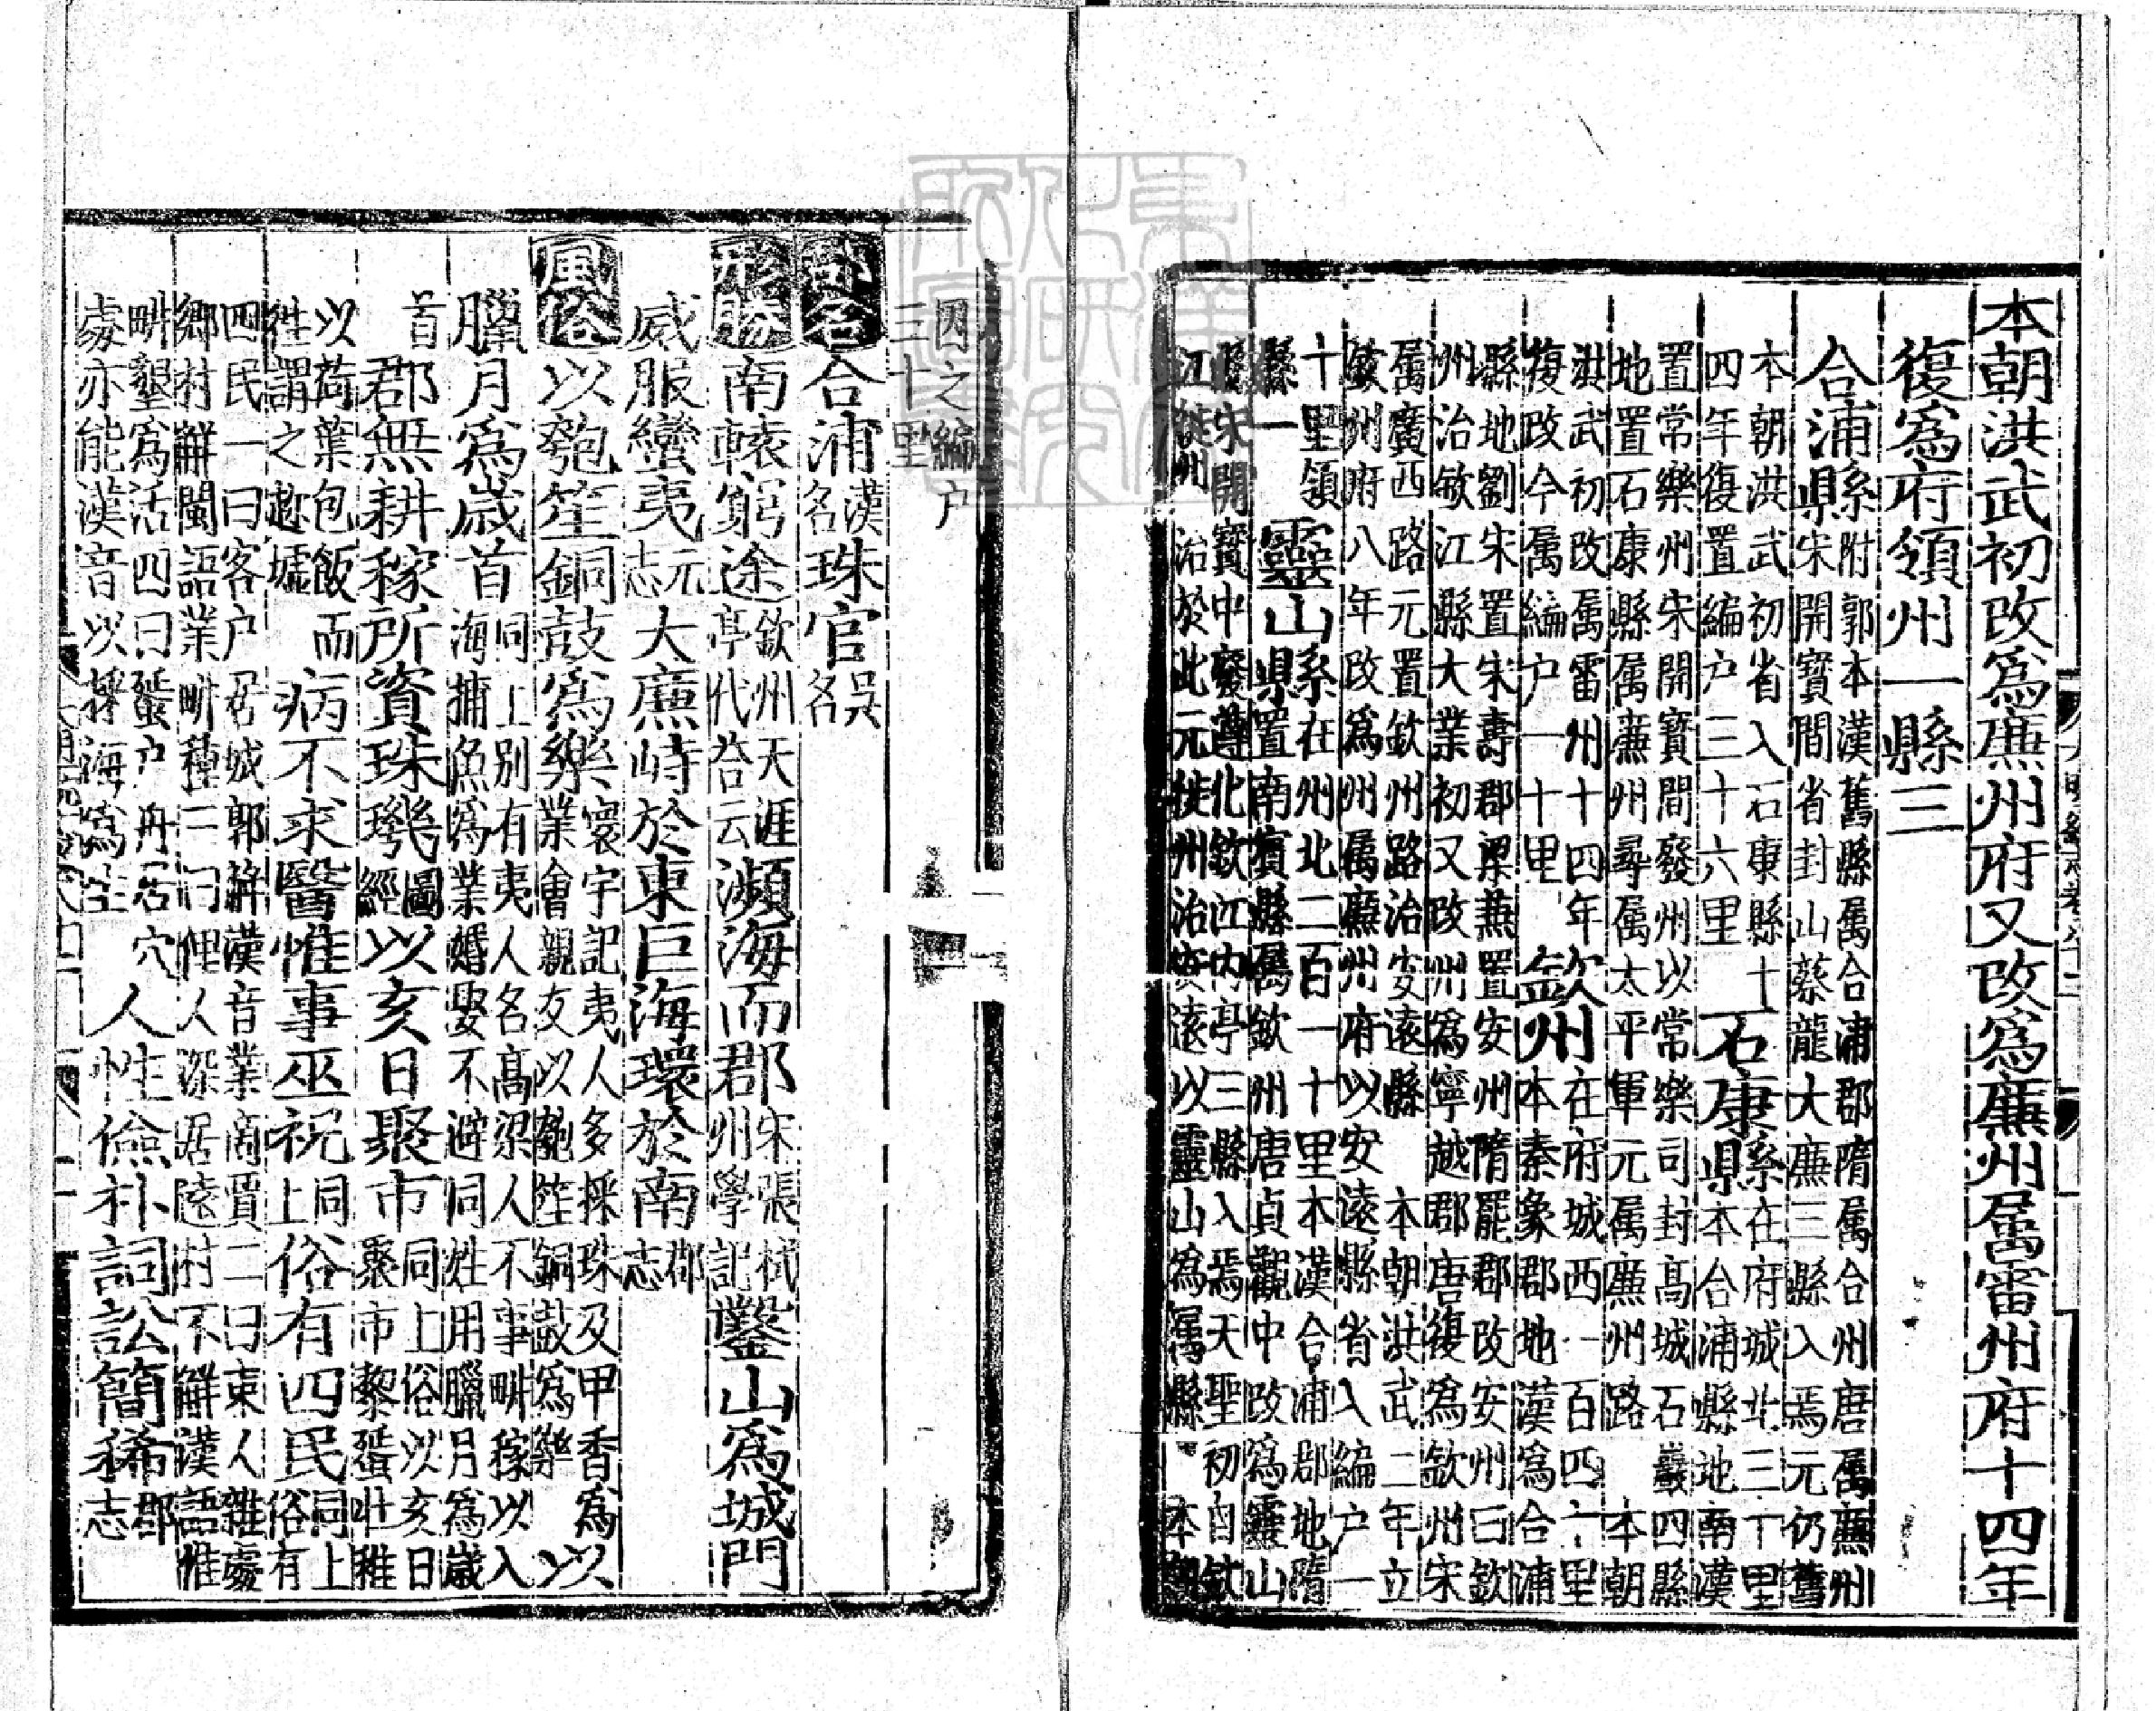 本朝洪武初改爲廉州府又改爲廉州属雷州府十四年
復爲府領州一縣三
合浦縣附郭本漢舊縣属合浦郡隋属合州唐属廉州
宋開寶間省封山蔡龍大廉三縣入焉元仍舊
本朝洪武初省入石康縣十
四年復置編户三十六里
石康縣在府城北三十里
本合浦縣地南漢
置常樂州宋開寶間廢州以常樂司封髙城石巖四縣
地置石康縣属廉州尋属太平軍元属廉州路 本朝
洪武初改属雷州十四年
復改今属編户一十里
欽州在府城西一百四十里
本秦象郡地漢爲合浦
縣地劉宋置宋壽郡梁兼置安州隋罷郡改安州曰欽
州治欽江縣大業初又改州爲寧越郡唐復爲欽州宋
属廣西路元置欽州路治安遠縣 本朝洪武二年立
欽州府八年改爲州属廉州府以安遠縣省入編户一
十里領
縣一
靈山縣在州北二百一十里本漢合浦郡地隋
置南賓縣属欽州唐貞觀中改爲靈山
縣宋開寶中廢遵化欽江内亭三縣入焉天聖初自欽
江徙州治於此元徙州治安遠以靈山爲属縣 本朝
因之編户
三十里
郡名合浦漢名珠官吳名
形勝南轅窮途欽州天涯亭代荅云瀕海而郡宋張栻州學記鑿山爲城門
威服蠻夷元志大廉峙於東巨海環於南郡志
風俗以匏笙銅鼓爲樂寰宇記夷人多採珠及甲香爲業會親友以匏笙銅鼓爲樂以
臘月爲歲首同上别有夷人名髙梁人不事畊稼以入海捕魚爲業婚娶不避同姓用臘月爲歲
首郡無耕稼所資珠璣圖經以亥日聚市同上俗以亥日聚市黎蜑壯稚
以荷葉包飯而
徃謂之趂墟
病不求醫惟事巫祝同上俗有四民同上俗有
四民一曰客户居城郭解漢音業商賈二曰東人雜處
鄉村解閩語業畊種三曰俚人深居遠村不解漢語惟
畊墾爲活四曰蜑户舟居穴
處亦能漢音以採海爲生
人性儉朴詞訟簡稀郡志